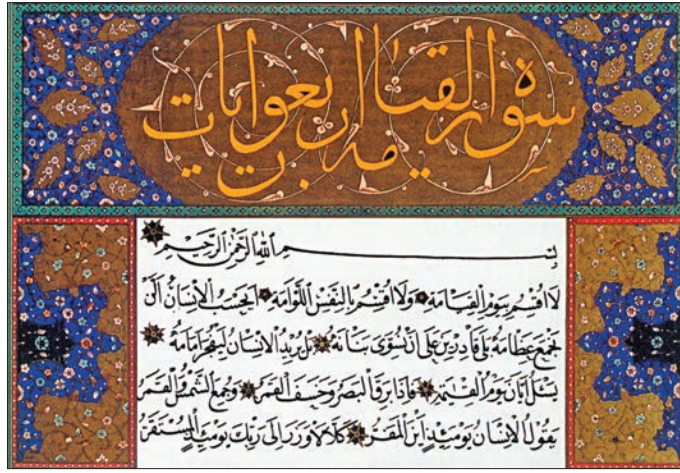 سورة القيامة اربعون ايات
بِسْمِ اللهِ الرَّحْمٰنِ الرَّحِيْمِ
لَا اُقْسِمُ بِيَوْمِ الْقِيَامَةِ وَلَا اُقْسِمُ بِالنَّفْسِ اللَّوَّامَةِ اَيَحْسَبُ الْاِنْسَانُ اَلَّنْ
نَجْمَعَ عِظَامَهُ بَلٰى قَادِرِيْنَ عَلٰى اَنْ نُسَوِّىَ بَنَانَهُ بَلْ يُرِيْدُ الْاِنْسَانُ لِيَفْجُرَ اَمَامَهُ
يَسْئَلُ اَيَّانَ يَوْمُ الْقِيٰمَةِ فَاِذَا بَرِقَ الْبَصَرُ وَخَسَفَ الْقَمَرُ وَجُمِعَ الشَّمْسُ وَالْقَمَرُ
يَقُوْلُ الْاِنْسَانُ يَوْمَئِذٍ اَيْنَ الْمَفَرُّ كَلَّا لَا وَزَرَ اِلٰى رَبِّكَ يَوْمَئِذٍ الْمُسْتَقَرُّ